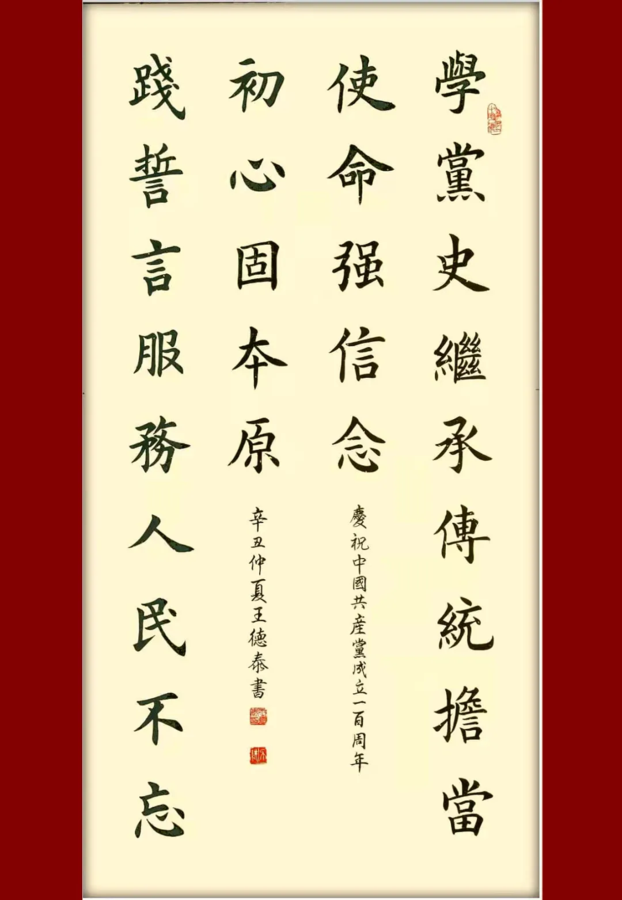 學黨史繼承傳統擔當
使命强信念
慶祝中國共産黨成立一百周年
踐誓言服務人民不忘
初心固本原
辛丑仲夏王德泰書